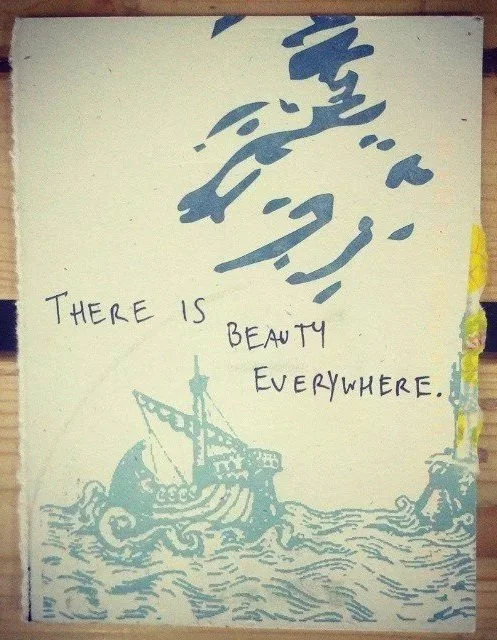 THERE IS
BEAUTY
EVERYWHERE.